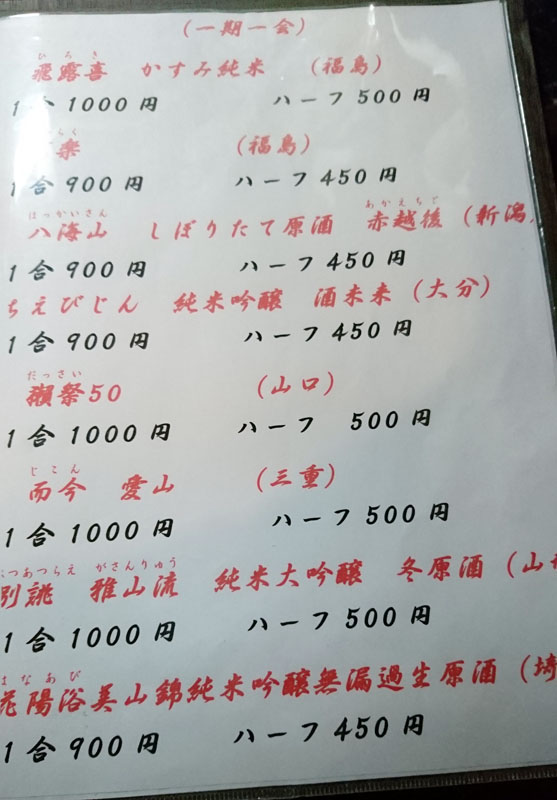 (一期一会)
ひろき
飛露喜 かすみ純米 (福島)
1合1000円 ハーフ500円
らく
楽 (福島)
1合900円 ハーフ450円
はっかいさん あかえちご
八海山 しぼりたて原酒 赤越後 (新潟
1合900円 ハーフ450円
ちえびじん 純米吟醸 酒未来 (大分)
1合900円 ハーフ450円
だっさい
獺祭50 (山口)
1合1000円 ハーフ 500円
じこん
而今 愛山 (三重)
1合1000円 ハーフ500円
つあつらえ がさんりゅう
別誂 雅山流 純米大吟醸 冬原酒 (山形
1合1000円 ハーフ500円
はなあび
花陽浴美山錦純米吟醸無濾過生原酒 (埼
1合900円 ハーフ450円